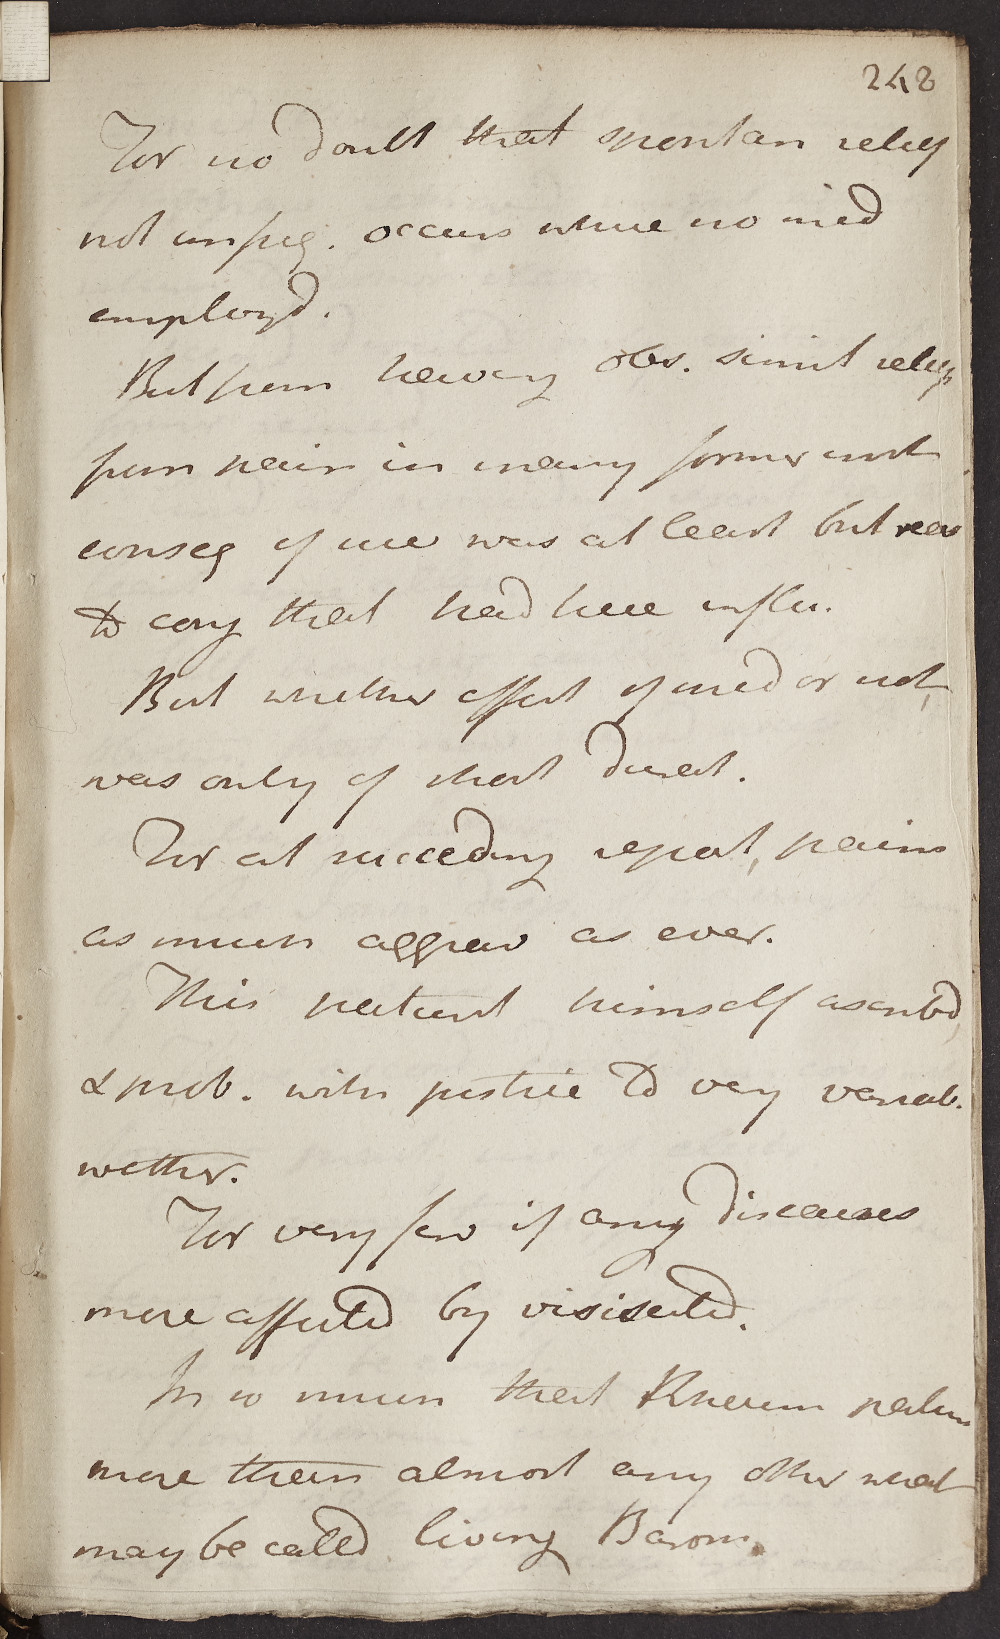 248
For no doubt that spontan relief
not unfreq. occurs where no med
employd.
But from having obs. simil relief
from pain in many former inst
conseq of use was at least but reas
to conj that had here influ.
But whether effect of med or not,
was only of short durat.
For at succeeding report, pains
as much aggrav as ever.
This patient himself ascribd,
& prob. with justice to very variab.
wether.
For very few if any diseases
more affected by visisetud.
In so much that Rheum patien
more than almost any other what
may be called living Barom.